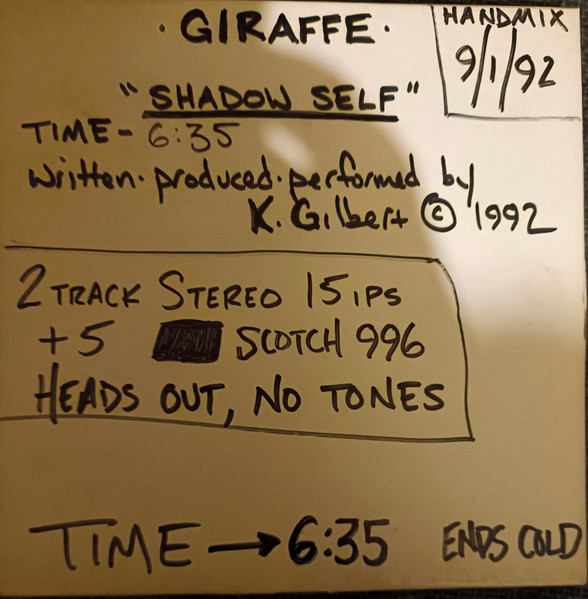 · GIRAFFE ·
HANDMIX
9/1/92
"SHADOW SELF"
TIME - 6:35
written · produced · performed by
K. Gilbert © 1992
2 TRACK STEREO 15 IPS
+5 SCOTCH 996
HEADS OUT, NO TONES
TIME → 6:35 ENDS COLD